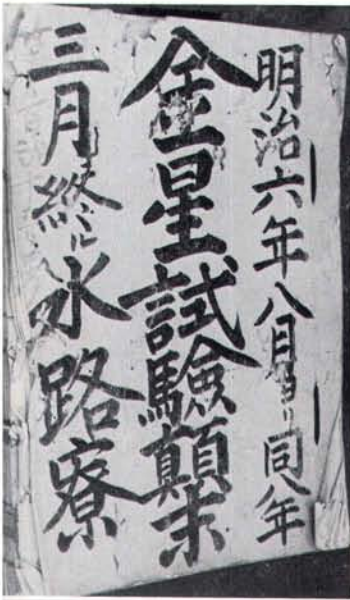 明治六年八月ヨリ同八年
金星試験顛末
三月終ル水路寮